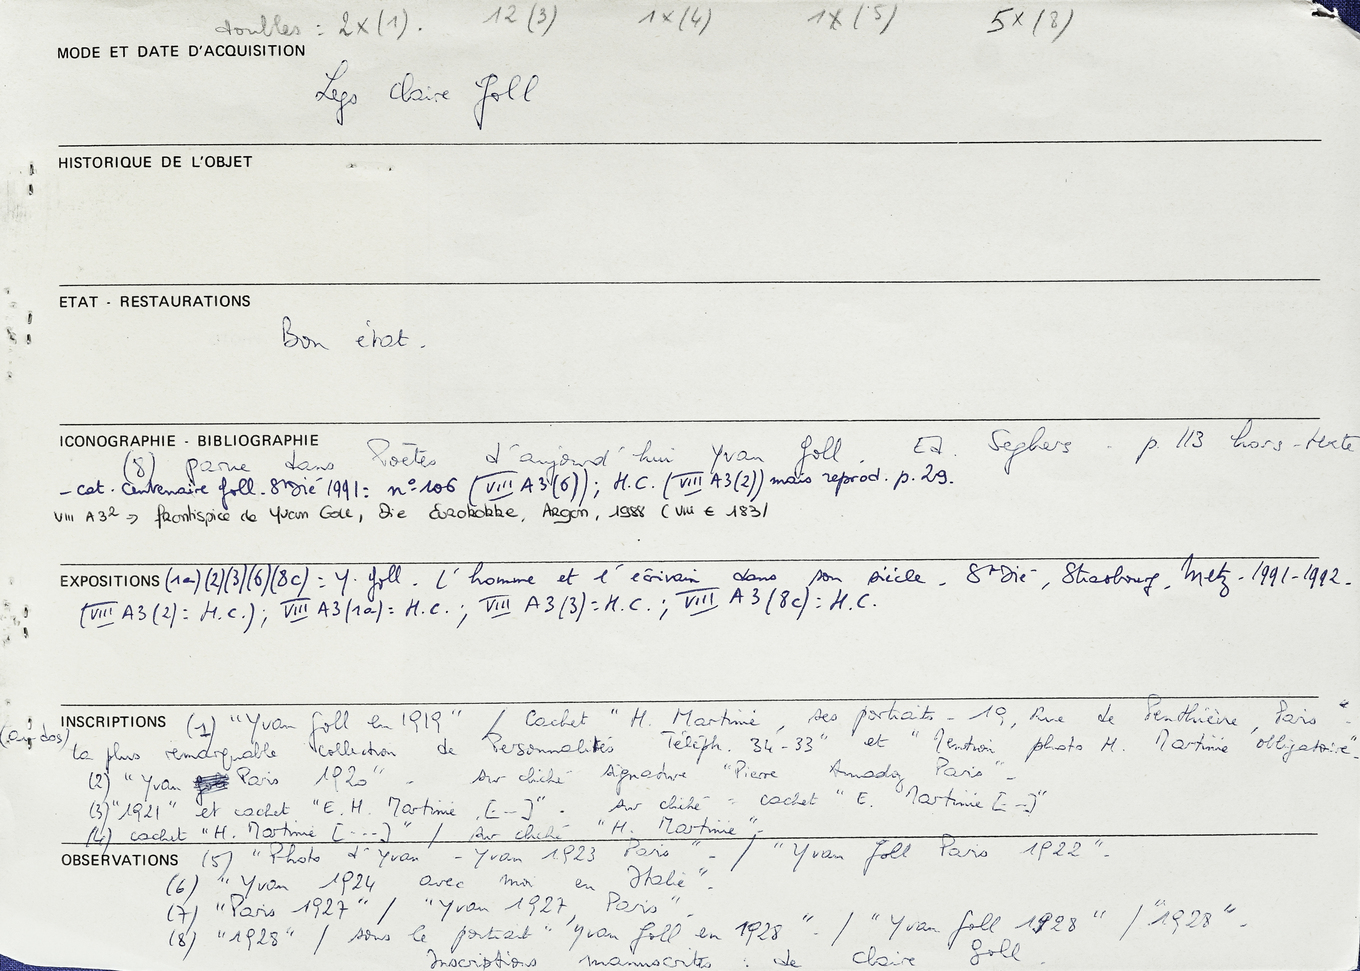 doubles : 2x (1). 12 (3) 1x (4) 1x (5) 5x (8)
MODE ET DATE D'ACQUISITION
Legs Claire Goll
HISTORIQUE DE L'OBJET
ETAT - RESTAURATIONS
Bon état.
ICONOGRAPHIE - BIBLIOGRAPHIE
(8) parue dans Poètes d'aujourd'hui Yvan Goll. Ed. Seghers - p. 113 hors-texte
- cat. Centenaire Goll. St Dié 1991 : n° 106 (VIII A3(6)) ; H.C. (VIII A3(2)) mais reprod. p. 29.
VIII A3² → frontispice de Yvan Goll, Die Eurokokke, Argon, 1988 (VIII E 183)
EXPOSITIONS (1a)(2)(3)(6)(8c) = Y. Goll. L'homme et l'écrivain dans son siècle. St Dié, Strasbourg, Metz - 1991-1992.
(VIII A3(2) = H.C.) ; VIII A3(1a) = H.C. ; VIII A3(3) = H.C. ; VIII A3(8c) = H.C.
INSCRIPTIONS (1) "Yvan Goll en 1919" / Cachet "H. Martinie, ses portraits - 19, Rue de Penthièvre, Paris" -
(au dos) la plus remarquable collection de Personnalités Téléph. 34-33" et "Mention photo H. Martinie obligatoire" -
(2) "Yvan Paris 1920" - sur cliché signature "Pierre Paris" -
(3) "1921" et cachet "E. H. Martinie [---]" - sur cliché = cachet "E. Martinie [---]"
(4) cachet "H. Martinie [----]" / sur cliché "H. Martinie" -
OBSERVATIONS (5) "Photo d'Yvan - Yvan 1923 Paris" - / "Yvan Goll Paris 1922" -
(6) "Yvan 1924 avec moi en Italie" -
(7) "Paris 1927" / "Yvan 1927, Paris" -
(8) "1928" / sous le portrait "Yvan Goll en 1928" - / "Yvan Goll 1928" / "1928" -
Inscriptions manuscrites : de Claire Goll.